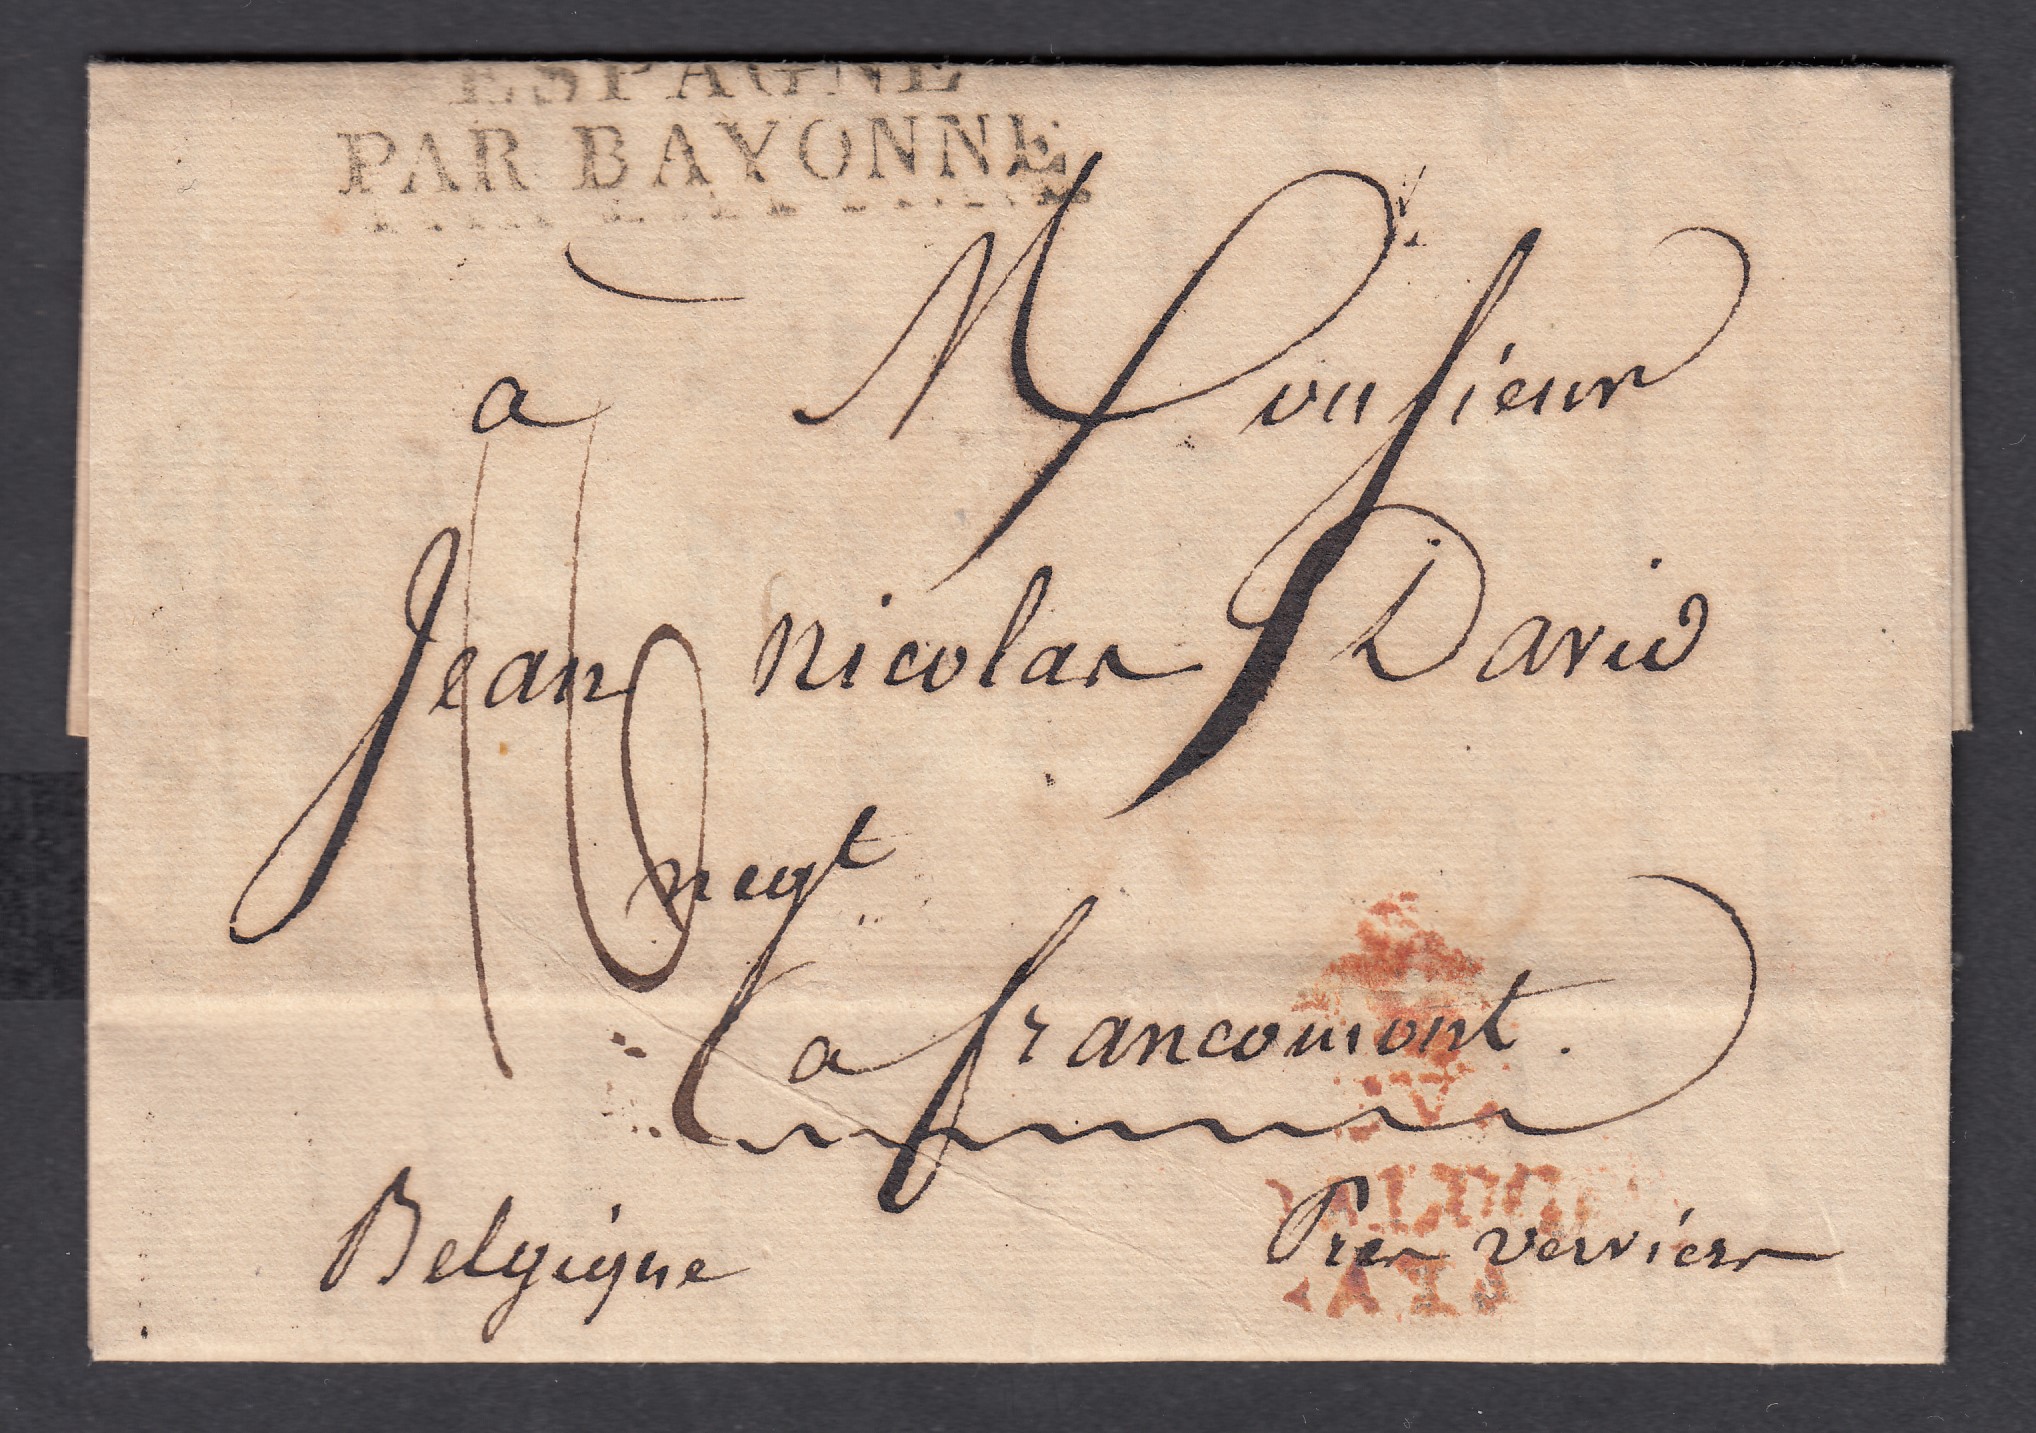 ESPAGNE
PAR BAYONNE
à Monsieur
Jean Nicolas David
negt
a francomont.
Belgique Pres verviers